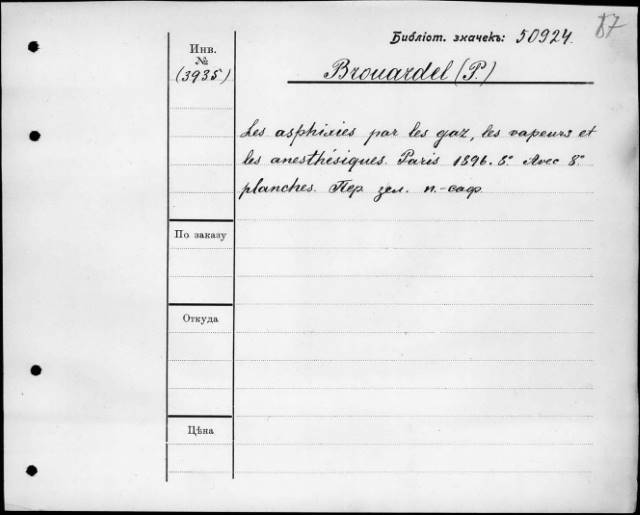 Библіот. значекъ: 50924.
87
Инв.
№
(3935)
Brouardel (P.)
Les asphixies par les gaz, les vapeurs et
les anesthésiques. Paris 1896. 8° Avec 8°
planches. Пер. зел. п.-саф.
По заказу
Откуда
Цѣна